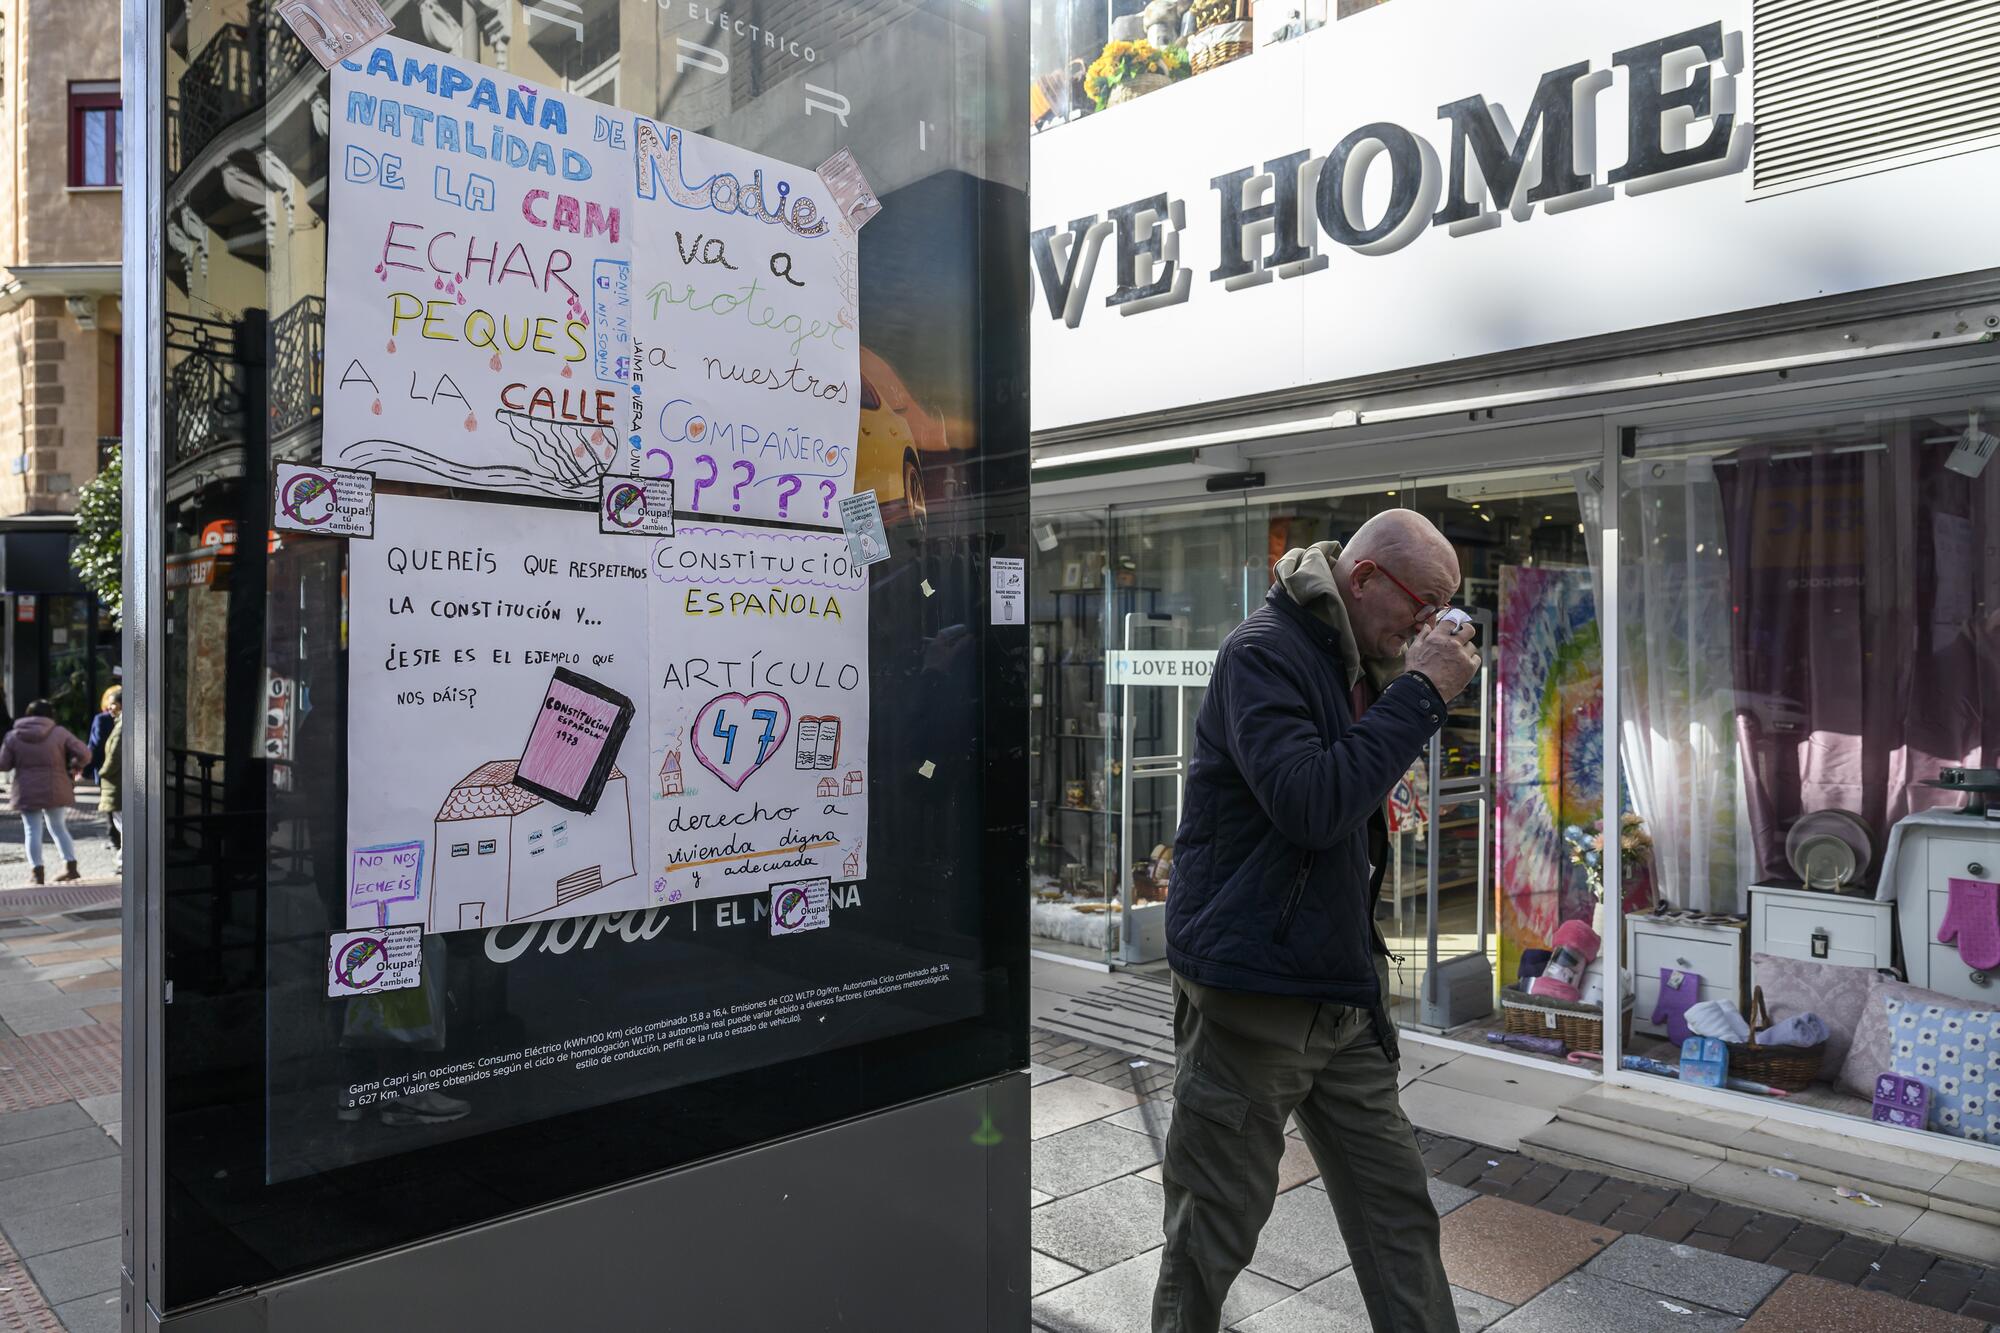 O ELÉCTRICO
A P R I
CAMPAÑA DE
NATALIDAD
DE LA CAM
ECHAR
PEQUES
A LA CALLE
NIÑOS SIN
NIÑOS SIN
JAIME VERA UNI
Nadie
va a
proteger
a nuestros
COMPAÑEROS
?????
Cuando vivir
es un lujo,
okupar es un
derecho!
Okupa!
tú
también
Cuando vivir
es un lujo,
okupar es un
derecho!
Okupa!
tú
también
QUEREIS QUE RESPETEMOS
LA CONSTITUCIÓN Y...
¿ESTE ES EL EJEMPLO QUE
NOS DÁIS?
CONSTITUCION
ESPAÑOLA
1978
NO NOS
ECHEIS
CONSTITUCIÓN
ESPAÑOLA
ARTÍCULO
47
derecho a
vivienda digna
y adecuada
Cuando vivir
es un lujo,
okupar es un
derecho!
Okupa!
tú
también
Cuando vivir
es un lujo,
okupar es un
derecho!
Okupa!
tú
también
TODO EL MUNDO
NECESITA UN HOGAR
NADIE NECESITA
CASEROS
Ford | EL M NA
Gama Capri sin opciones: Consumo Eléctrico (kWh/100 Km) ciclo combinado 13,8 a 16,4. Emisiones de CO2 WLTP 0g/Km. Autonomía Ciclo combinado de 374
a 627 Km. Valores obtenidos según el ciclo de homologación WLTP. La autonomía real puede variar debido a diversos factores (condiciones meteorológicas,
estilo de conducción, perfil de la ruta o estado de vehículo).
OVE HOME
LOVE HOM